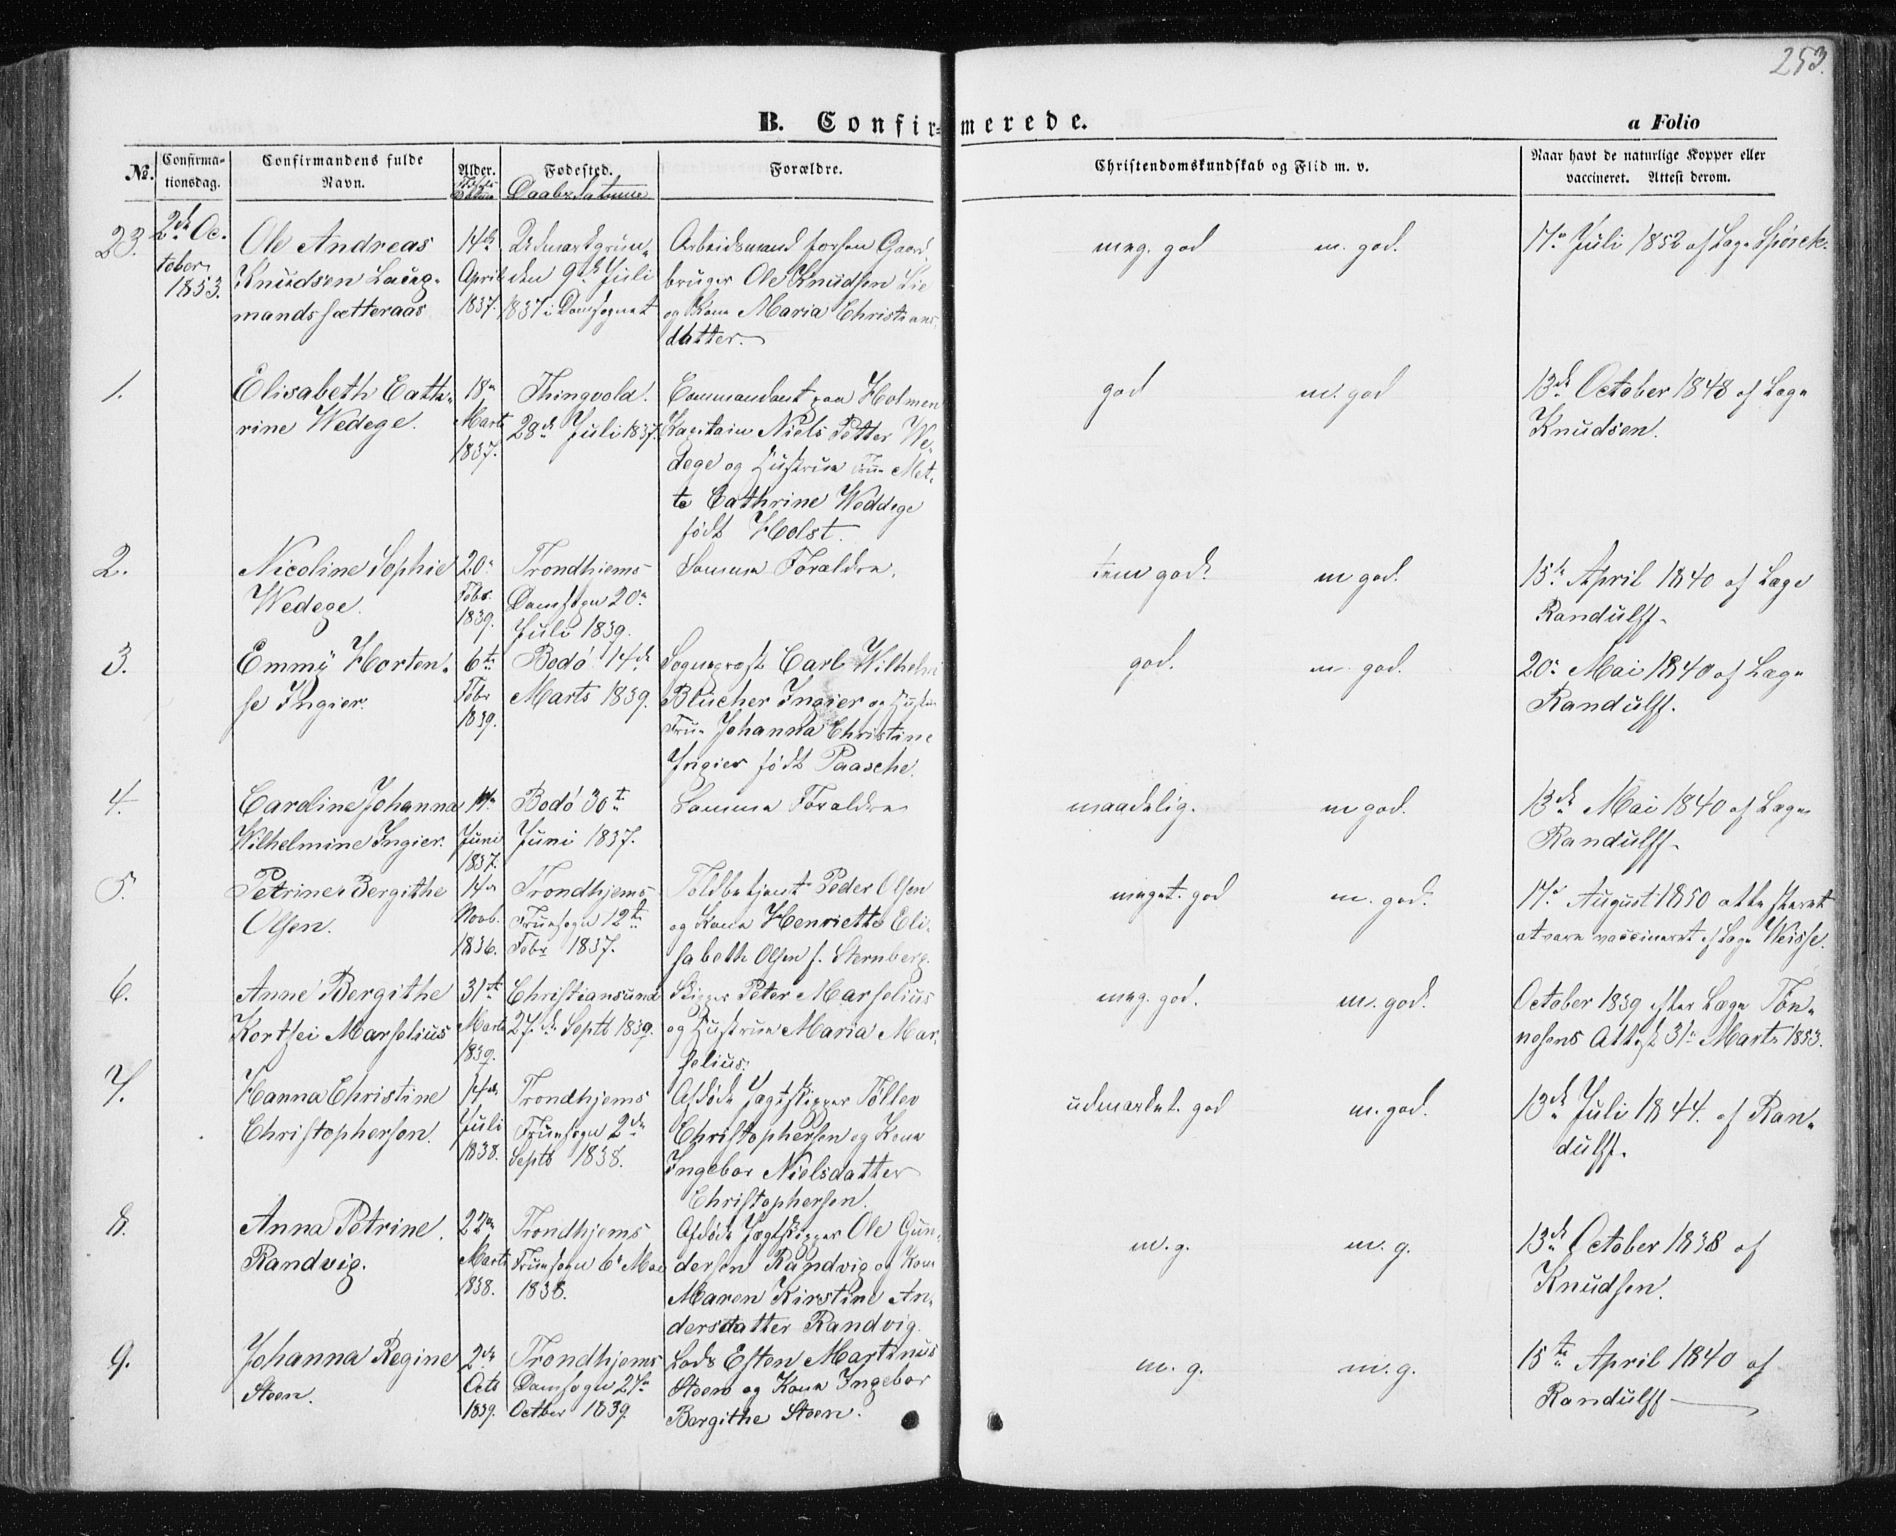 253.
B. Confirmerede.
a Folio
No.
Confirmationsdag.
Confirmandens fulde Navn.
Alder.
Fødested.
Daabsdatum
Forældre.
Christendomskundskab og Flid m. v.
Naar havt de naturlige Kopper eller vaccineret. Attest derom.
23.
2de Oc-
tober
1853.
Ole Andreas
Knudsen Laug-
mandssætteraas
14de
April
1837.
den 9de Juli
1837 i Domsognet
Arbeidsmand forhen Gaard-
bruger Ole Knudsen Lie
og Kone Maria Christians-
datter.
meg. god
m. god.
17de Juli 1852 af Læge Spørck.
1.
Elisabeth Cath-
rine Wedege.
18de
Marts
1837.
Thingvold.
28de Juli 1837.
Commandant paa Holmen
Kapitain Niels Petter We-
dege og Hustrue Frue Met-
te Cathrine Weddege
født Holst.
god
m. god
13de October 1848 af Læge
Knudsen.
2.
Nicoline Sophie
Wedege.
20de
Febr.
1839.
Trondhjems
Domsogn 20de
Juli 1839.
Samme Forældre.
tem. god.
m god.
15de April 1840 af Læge
Randulff.
3.
Emmy Horten-
se Ingier.
6te
Febr
1839.
Bodö 14de
Marts 1839.
Sognepræst Carl Wilhelm
Blücher Ingier og Hustru
Frue Johanna Christine
Ingier født Paasche.
god.
m. god.
20de Mai 1840 af Læge
Randulff.
4.
Caroline Johanna
Wilhelmine Ingier.
Juni
1837.
Bodö 30te
Juni 1837.
Samme Forældre
maadelig.
m god.
13de Mai 1840 af Læge
Randulff.
5.
Petrine Bergithe
Olsen.
14de
Novb.
1836.
Trondhjems
Fruesogn 12te
Febr 1837.
Toldbetjent Peder Olsen
og Kone Henriette Eli-
sabeth Olsen f. Sternberg.
meget. god
m. god.
17de August 1850 attesteret
at være vaccineret af Læge Weisse.
6.
Anne Bergithe
Kortsei Marselius
31te
Marts
1839.
Christiansund
27de Septb 1839.
Skipper Peter Marselius
og Hustrue Maria Mar-
selius.
meg. god.
m. god.
October 1839 efter Læge Ton-
nesens Attest 31te Marts 1853.
7.
Hanna Christine
Christophersen.
14de
Juli
1838.
Trondhjems
Fruesogn 2de
Septb 1838.
Afdøde Jægtskipper Tollev
Christophersen og Kone
Ingebor Nielsdatter
Christophersen.
udmærket. god
m. god.
13de Juli 1844. af Ran-
dulff.
8.
Anna Petrine
Randvig.
22de
Marts
1838.
Trondhjems
Fruesogn 6te Mai
1838.
Afdøde Jægtskipper Ole Gun-
dersen Randvig og Kone
Maren Kirstine An-
dersdatter Randvig.
m. g.
m. g.
13de October 1838 af
Knudsen.
9.
Johanna Regine
Steen.
2de
Octb
1839.
Trondhjems
Domsogn 27de
October 1839.
Lods Esten Martinus
Steen og Kone Ingebor
Bergithe Steen.
m. g.
m. g.
15te April 1840 af
Randulff